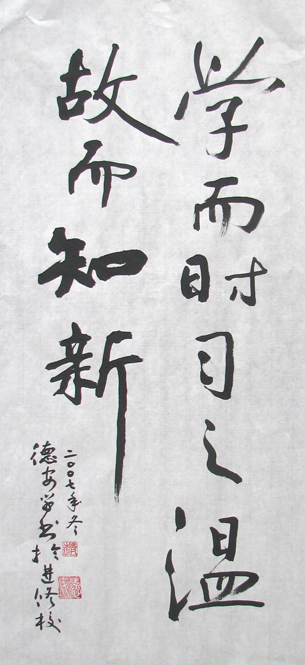 学而时习之温
故而知新
二〇〇七年冬
德安学书于进修校